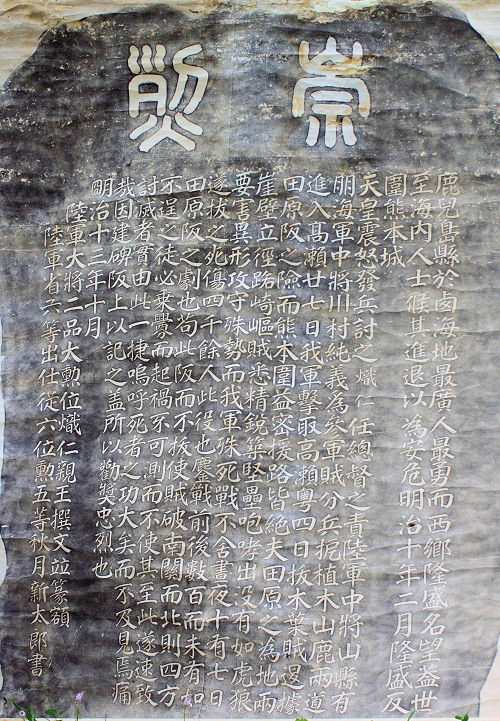 崇烈
鹿兒島縣於西海地最廣人最勇而西郷隆盛名望蓋世
至海内人士候其進退以為安危明治十年二月隆盛反
圍熊本城
天皇震怒發兵討之熾仁任總督之責陸軍中將山縣有
朋海軍中將川村純義為參軍賊分兵扼植木山鹿兩道
進入髙瀬廿七日我軍擊取高瀬粤四日拔木葉賊退據
田原阪之險而熊本圍益密援路皆絶夫田原之為地兩
崖壁立徑路崎嶇賊悉精鋭築堅壘咆哮出没有如虎狼
要害異形攻守殊勢而我軍殊死戰不舍晝夜十有七日
遂拔之死傷四千餘人此役也鏖戰前後數百而未有如
田原阪之劇也苟此阪而不拔使賊破南關而北則四方
不逞之徒必乘釁而起禍不可測而不使其至此遂速致
討滅者實由此一捷嗚呼死者之功大矣而不及見焉痛
哉因建碑阪上以記之蓋所以勸奬忠烈也
明治十三年十月
陸軍大將二品大勲位熾仁親王撰文竝篆額
陸軍省六等出仕從六位勲五等秋月新太郎書